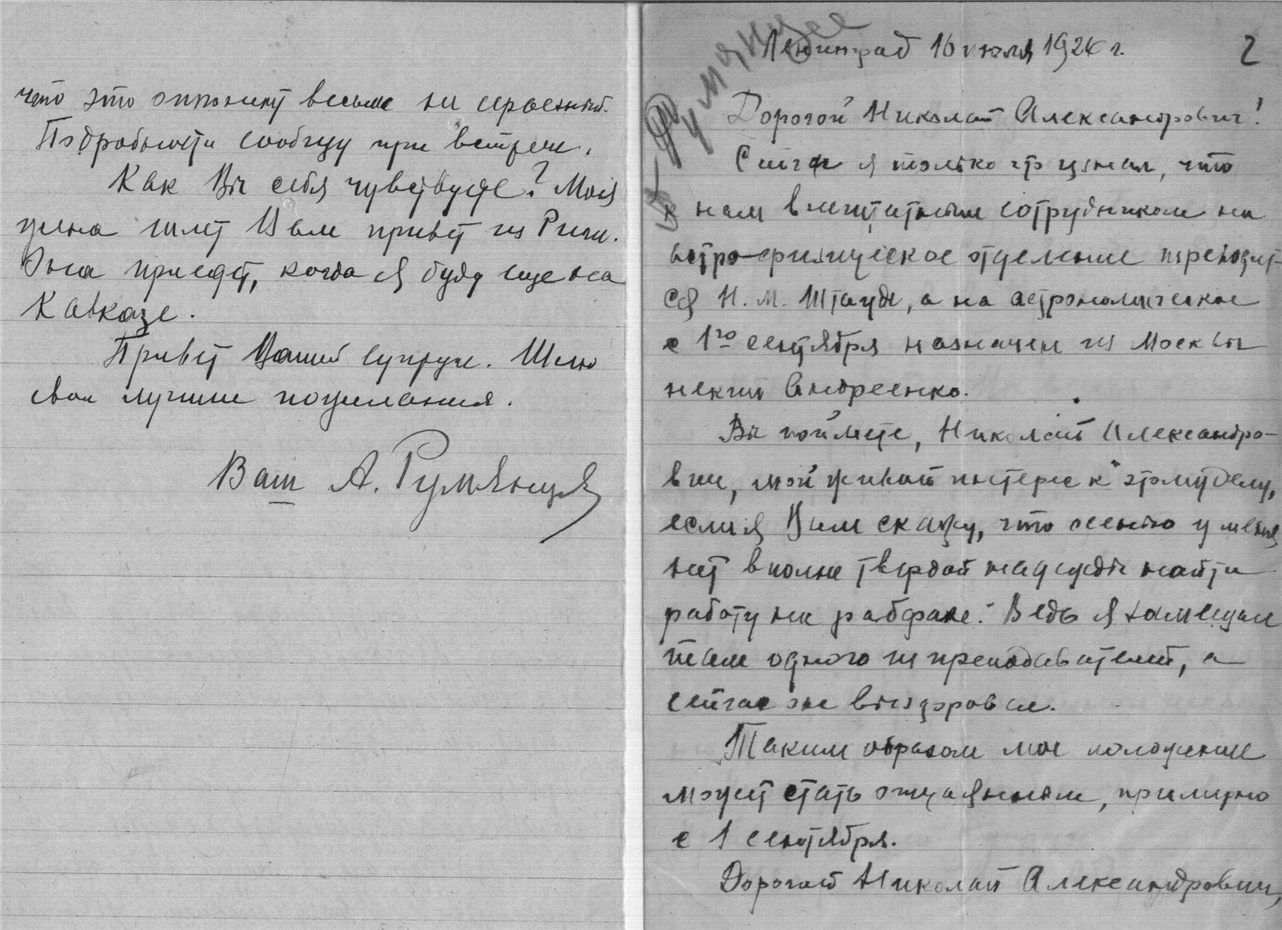 что это оппонент весьма не серьезный.
Подробности сообщу при встрече.
Как Вы себя чувствуете? Моя
жена шлет Вам привет из Риги.
Она приедет, когда я буду еще на
Кавказе.
Привет Вашей супруге. Шлю
свои лучшие пожелания.
Ваш А. Румянцев
Ленинград 16 июля 1926 г.
2
Дорогой Николай Александрович!
Сейчас я только что узнал, что
к нам внештатным сотрудником на
астро-физическое отделение переводит-
ся Н. М. Штауде, а на астрономическое
с 1го сентября назначен из Москвы
некий Андреенко.
Вы поймете, Николай Александро-
вич, мой живой интерес к этому делу,
если я Вам скажу, что осенью у меня
нет вполне твердой надежды найти
работу на рабфаке. Ведь я замещал
там одного из преподавателей, а
сейчас он выздоровел.
Таким образом мое положение
может стать отчаянным, примерно
с 1 сентября.
Дорогой Николай Александрович,